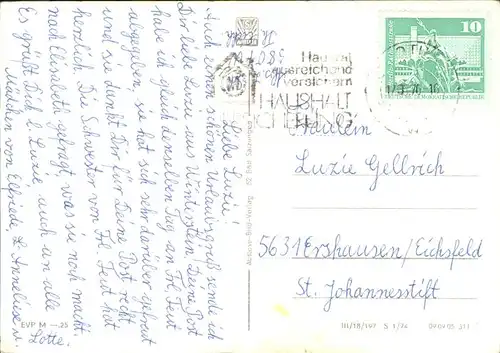 Liebe Luzie!
Auch einen schönen Urlaubsgruß sende ich
Dir liebe Luzie aus Deine Post
habe ich gleich denselben Tag an Frl. Feut
abgegeben, sie hat sich sehr darüber gefreut
und sie dankt Dir für Deine Post recht
herzlich. Die Schwester von Frl. Feut hat
nach Elisabeth gefragt, was sie noch macht.
Es grüßt Dich l. Luzie, auch an alle
Mädchen von Elfriede, l. Anneliese u.
Lotte.
EVP M —.25
Auslese-Bild-Verlag · 62 Bad Salzungen
Hausrat
ausreichend
versichern
HAUSHALT
10
DEUTSCHE DEMOKRATISCHE REPUBLIK
Fräulein
Luzie Gellrich
5631 Ershausen/Eichsfeld
St. Johannesstift
III/18/197 S 1/74 09 09 05 311